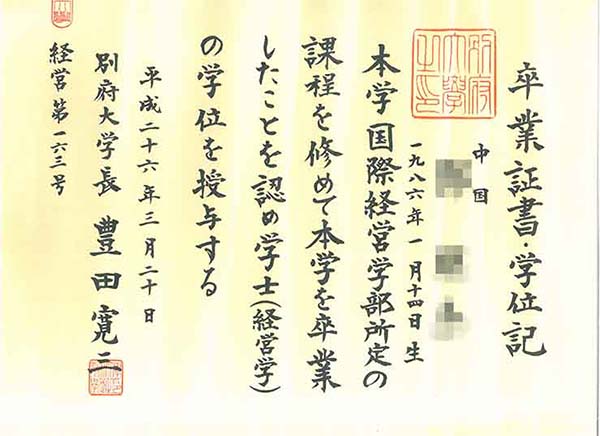 卒業証書・学位記
別府大学之印
中国
一九八六年一月十四日生
本学国際経営学部所定の
課程を修めて本学を卒業
したことを認め学士(経営学)
の学位を授与する
平成二十六年三月二十日
別府大学長 豊田寛三
経営第一六三号